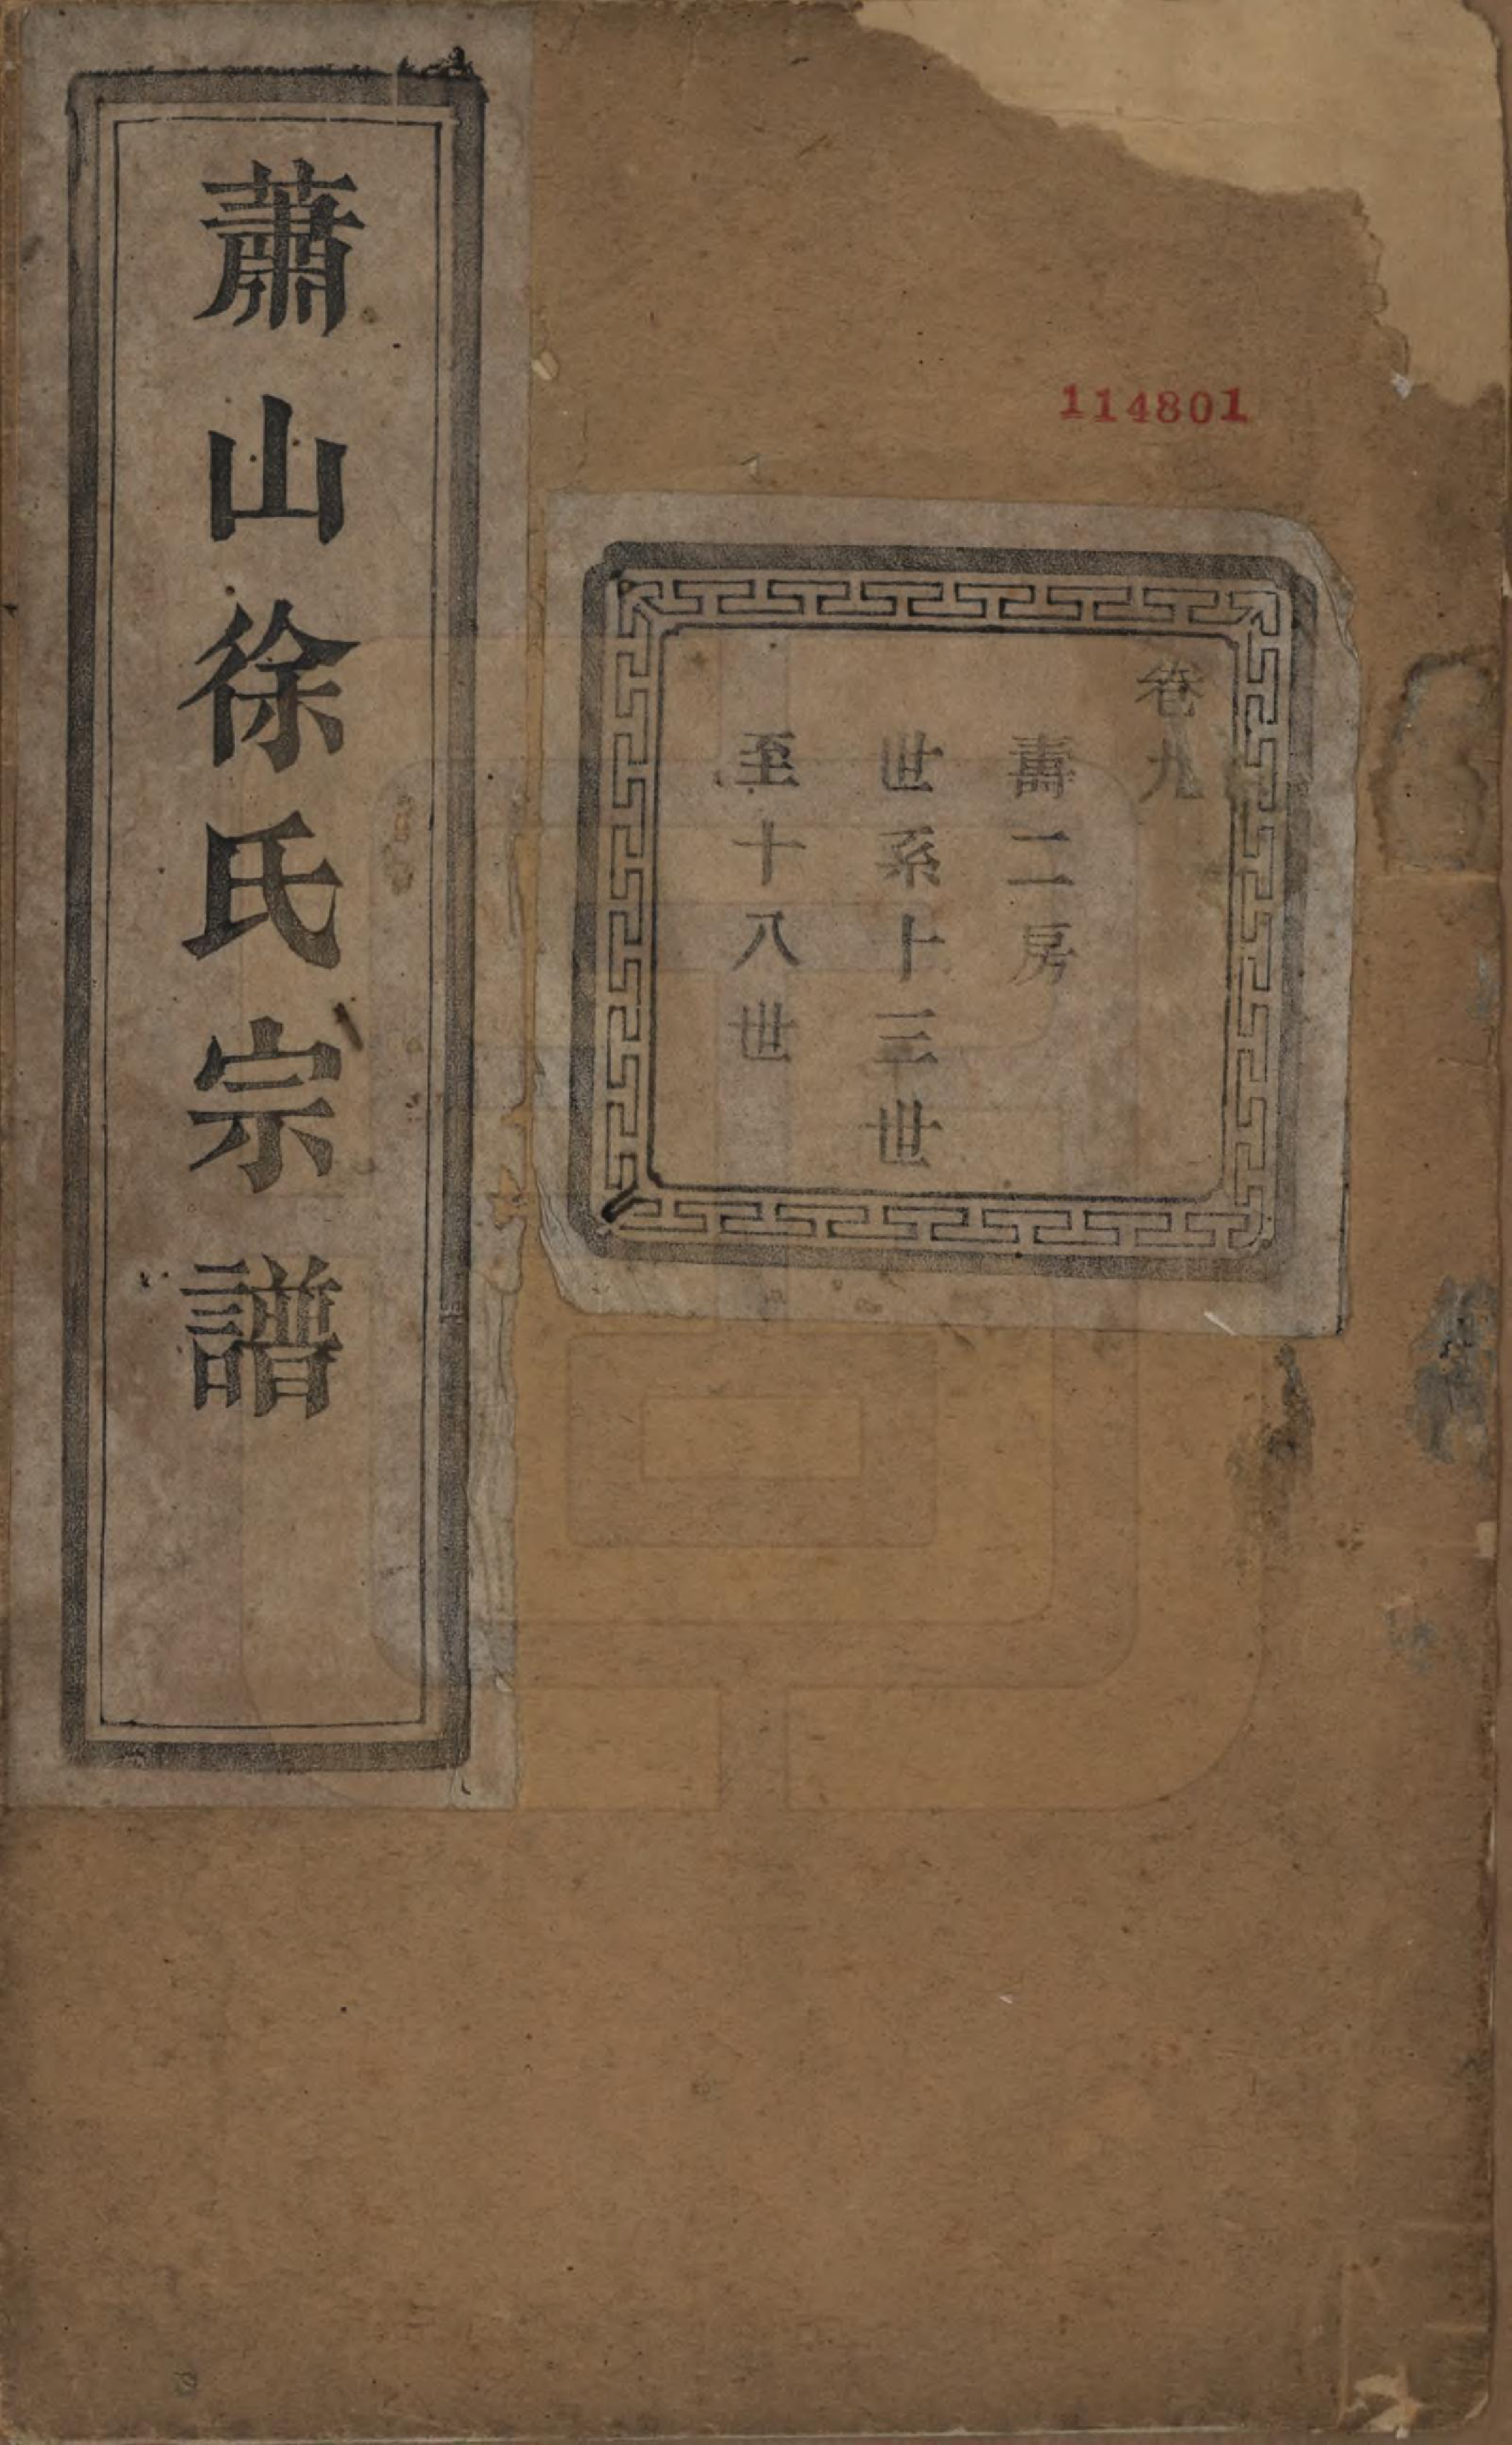 蕭山徐氏宗譜
114801
卷九
壽二房
世系十三世
至十八世